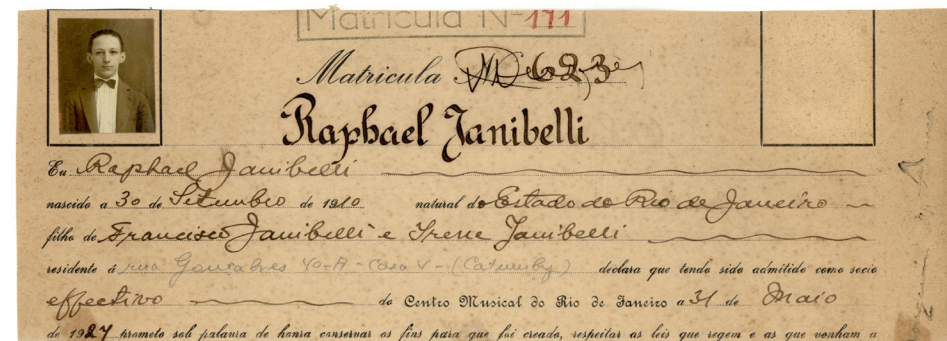 Matricula Nº 171
Matricula 623
Raphael Janibelli
Eu Raphael Janibelli
nascido a 30 de Setembro de 1910 natural do Estado do Rio de Janeiro
filho de Francisco Janibelli e Irene Janibelli
residente á rua Gonçalves 40-A - Casa V - (Catumby) declara que tendo sido admittido como socio
effectivo do Centro Musical do Rio de Janeiro a 31 de Maio
de 1927 prometo sob palavra de honra conservar os fins para que foi creado, respeitar as leis que regem e as que venham a